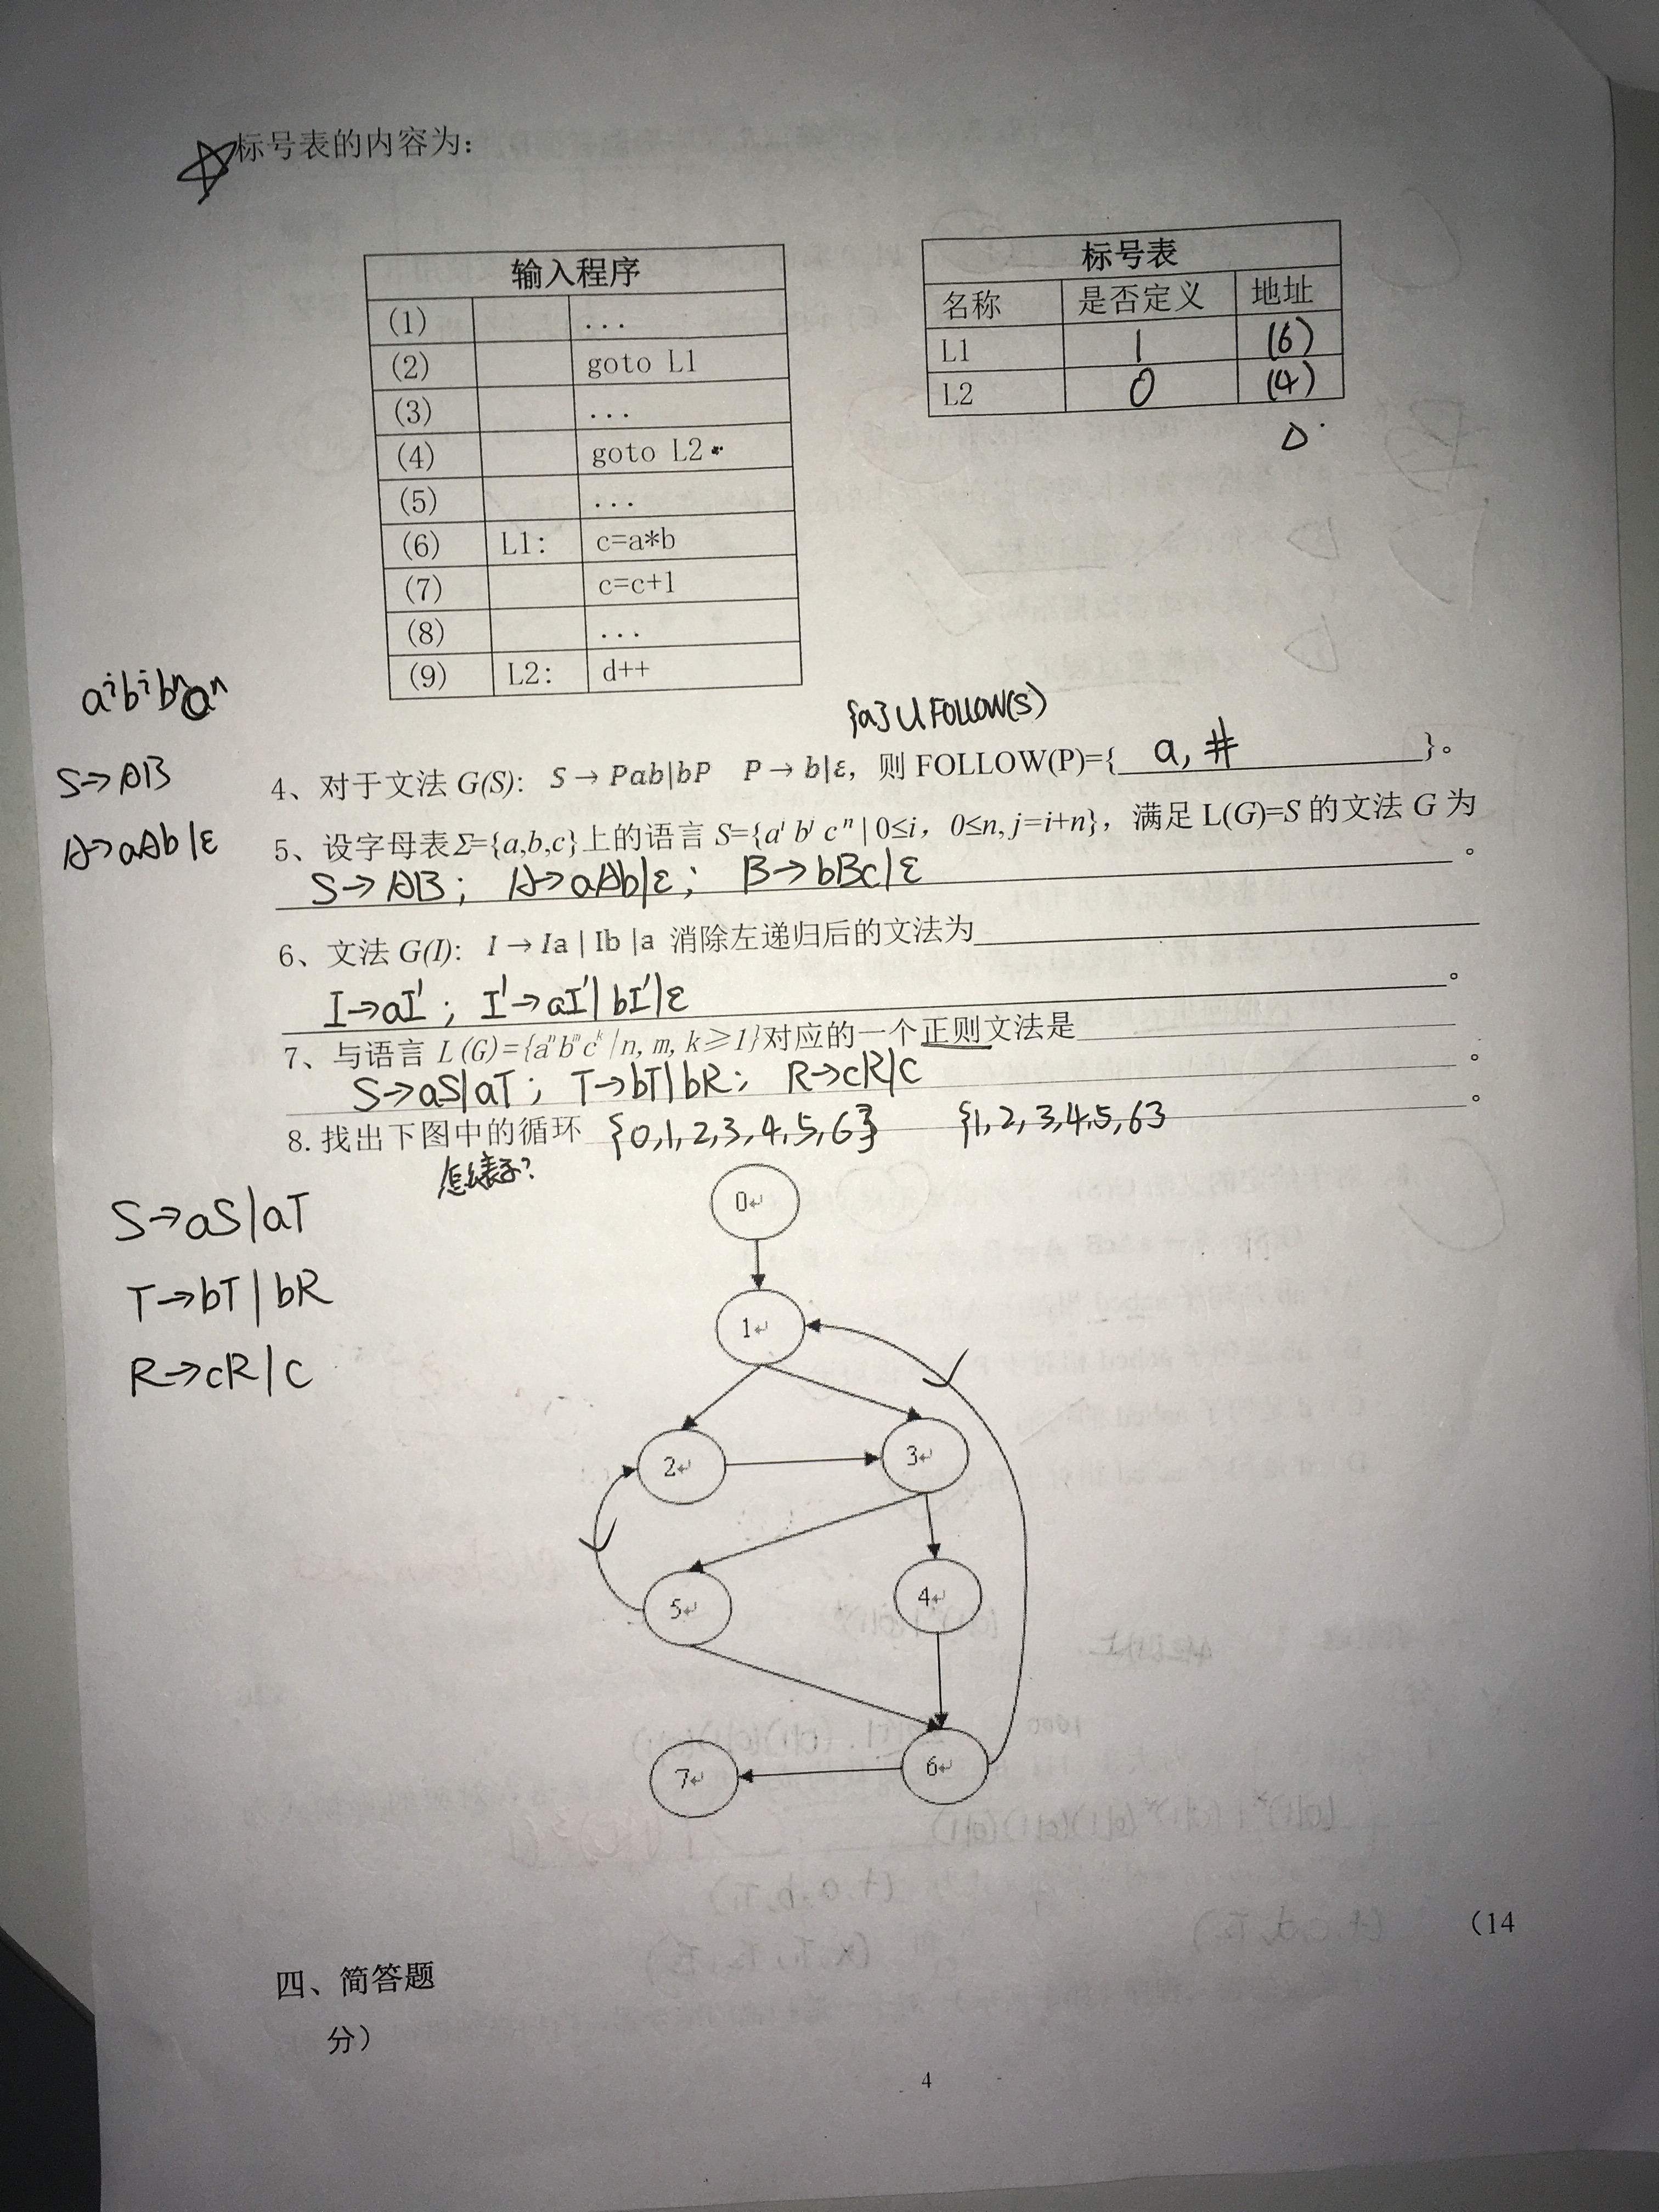 标号表的内容为：
输入程序
(1) ...
(2) goto L1
(3) ...
(4) goto L2
(5) ...
(6) L1: c=a*b
(7) c=c+1
(8) ...
(9) L2: d++
标号表
名称 是否定义 地址
L1 1 (6)
L2 0 (4)
0
aⁱbⁱbⁿaⁿ
S→AB
A→aAb|ε
{a}∪FOLLOW(S)
4、对于文法 G(S)： S → Pab|bP P → b|ε，则 FOLLOW(P)={ a, # }。
5、设字母表Σ={a,b,c}上的语言 S={aⁱ bʲ cⁿ | 0≤i，0≤n, j=i+n}，满足 L(G)=S 的文法 G 为
S→AB； A→aAb|ε； B→bBc|ε 。
6、文法 G(I)： I → Ia | Ib |a 消除左递归后的文法为
I→aI'； I'→aI'|bI'|ε 。
7、与语言 L(G)={aⁿbᵐcᵏ|n, m, k≥1}对应的一个正则文法是
S→aS|aT； T→bT|bR； R→cR|c 。
8.找出下图中的循环 {0,1,2,3,4,5,6} {1,2,3,4,5,6} 。
怎么表示?
S→aS|aT
T→bT|bR
R→cR|c
0
1
2
3
5
4
7
6
(14
四、简答题
分）
4